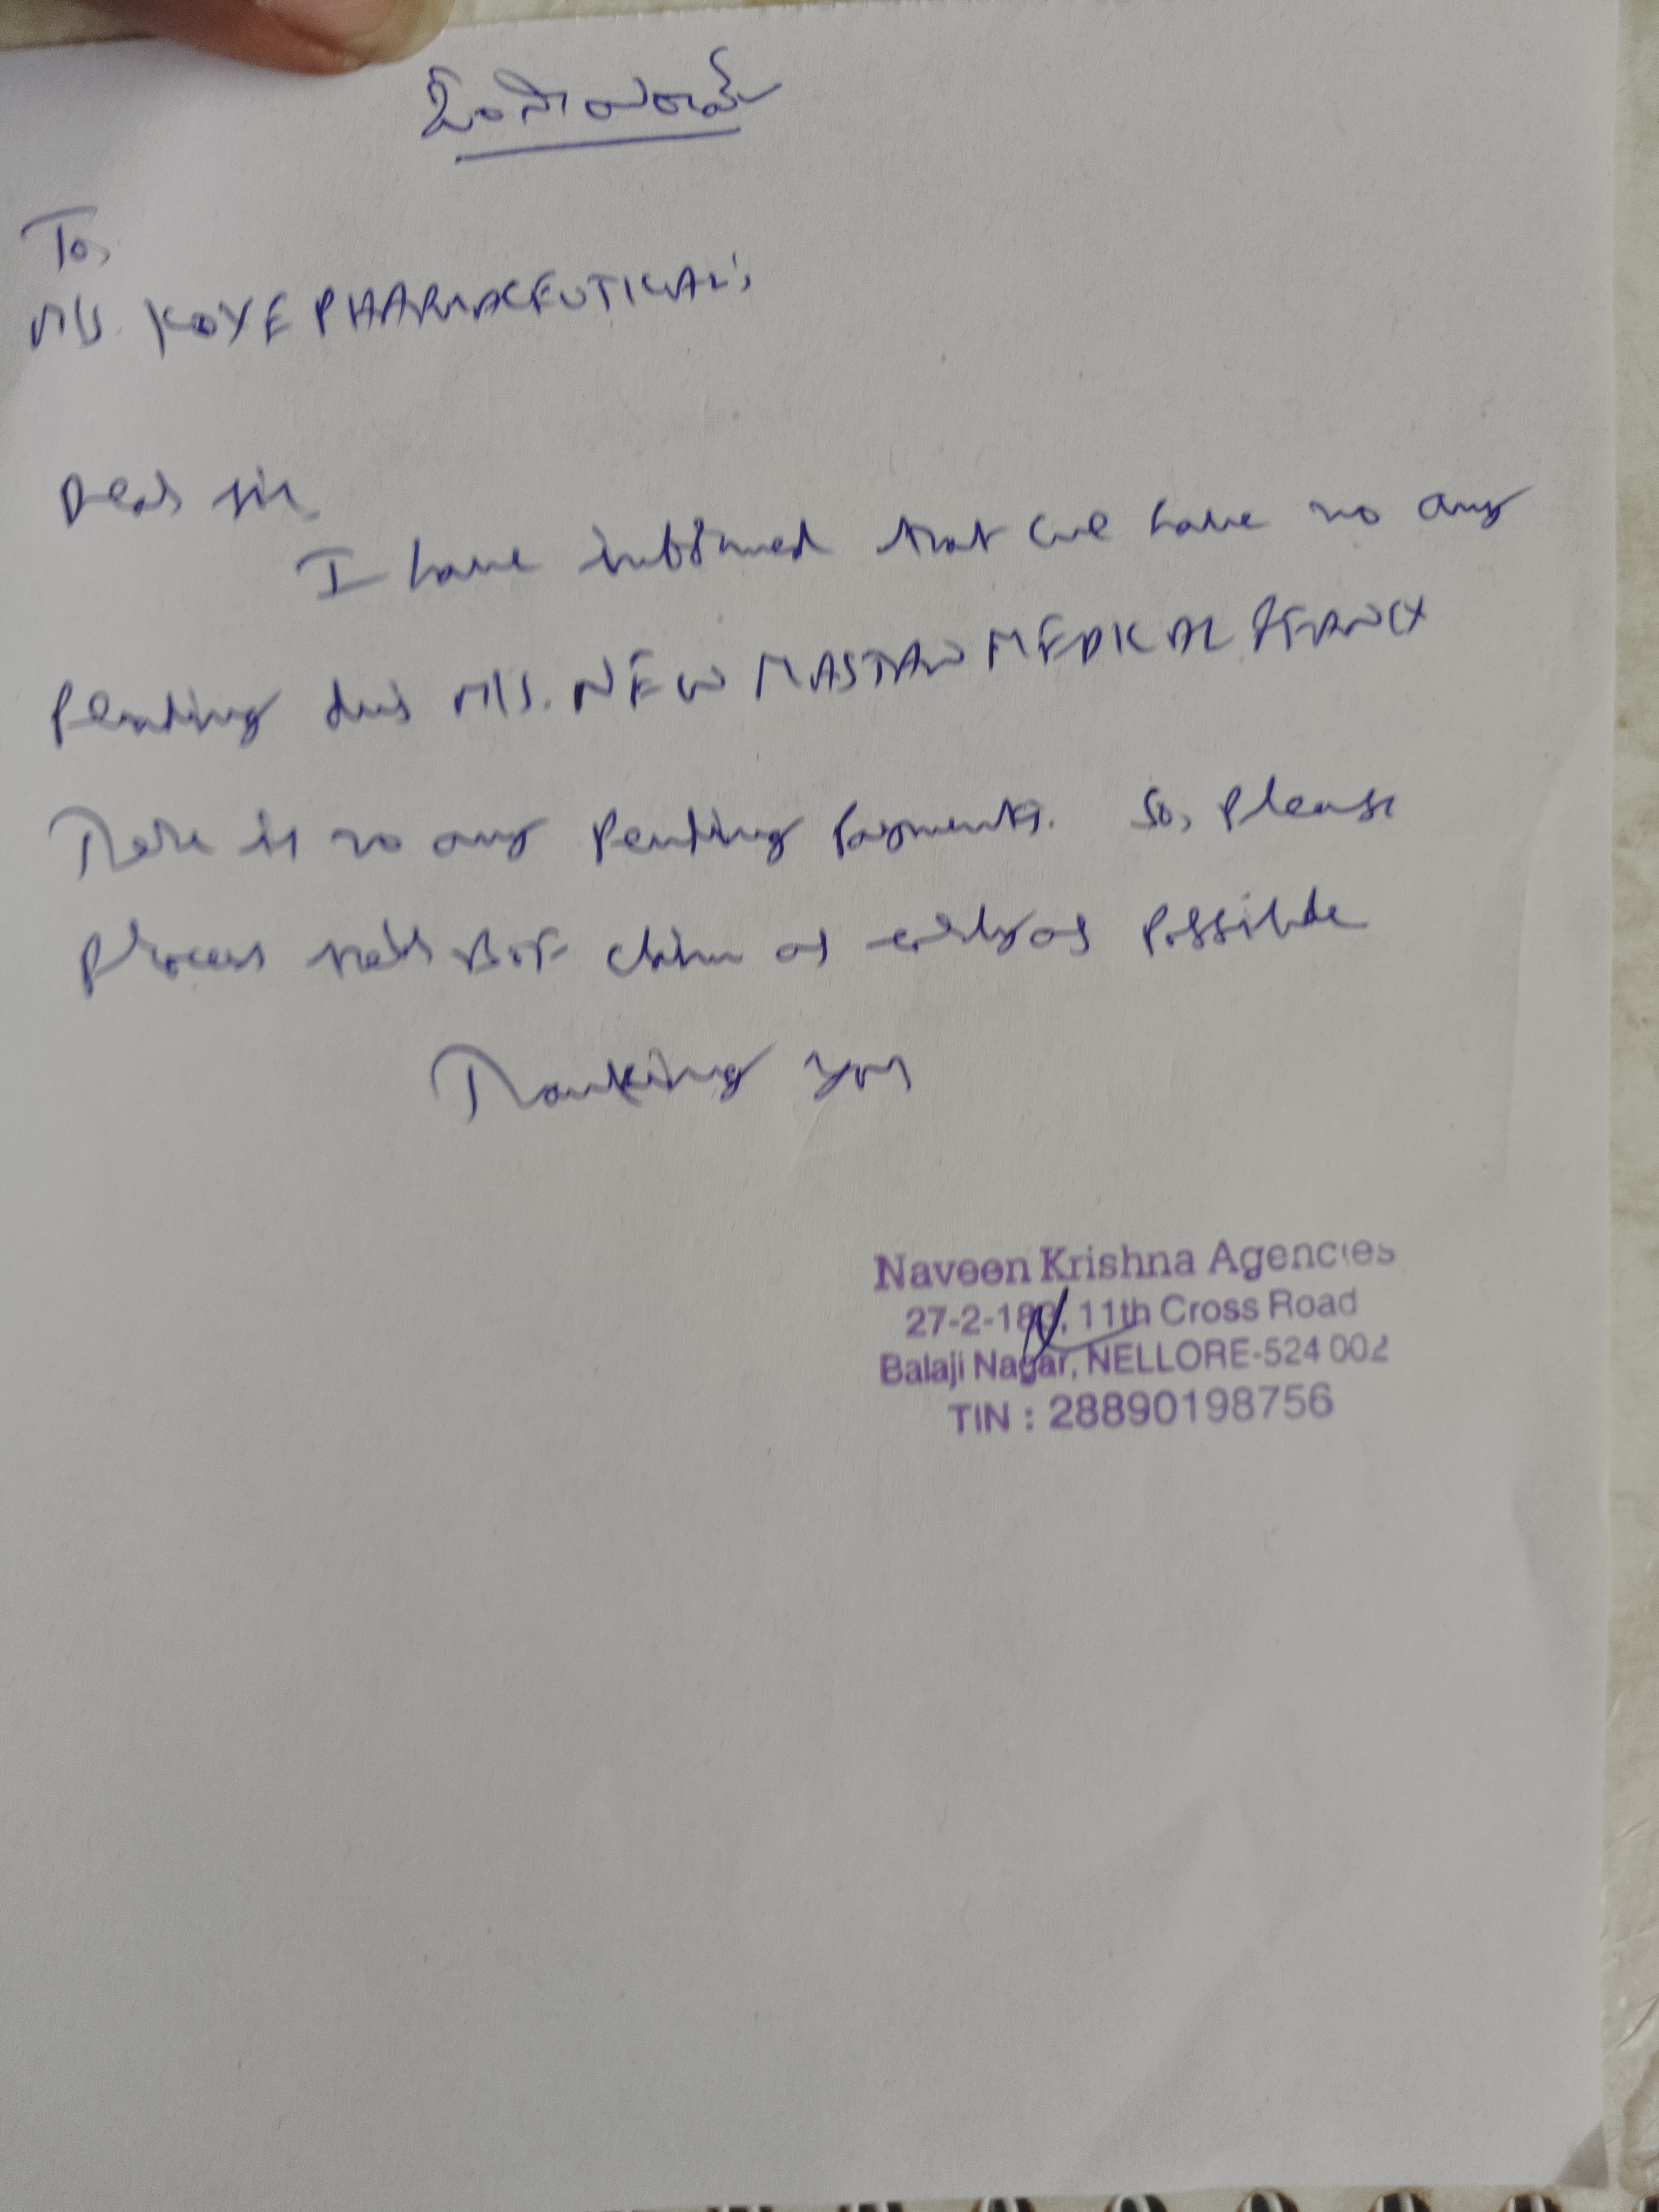 ఓం సాయిరామ్
To,
M/S. KOYE PHARMACEUTICAL'S
Dear Sir,
I have informed that we have no any
Pending dues M/S. NEW MASTAN MEDICAL AGENCY
There is no any Pending Payments. So, Please
Process claim as early as Possible
Thanking you
Naveen Krishna Agencies
27-2-180, 11th Cross Road
Balaji Nagar, NELLORE-524 002
TIN : 28890198756